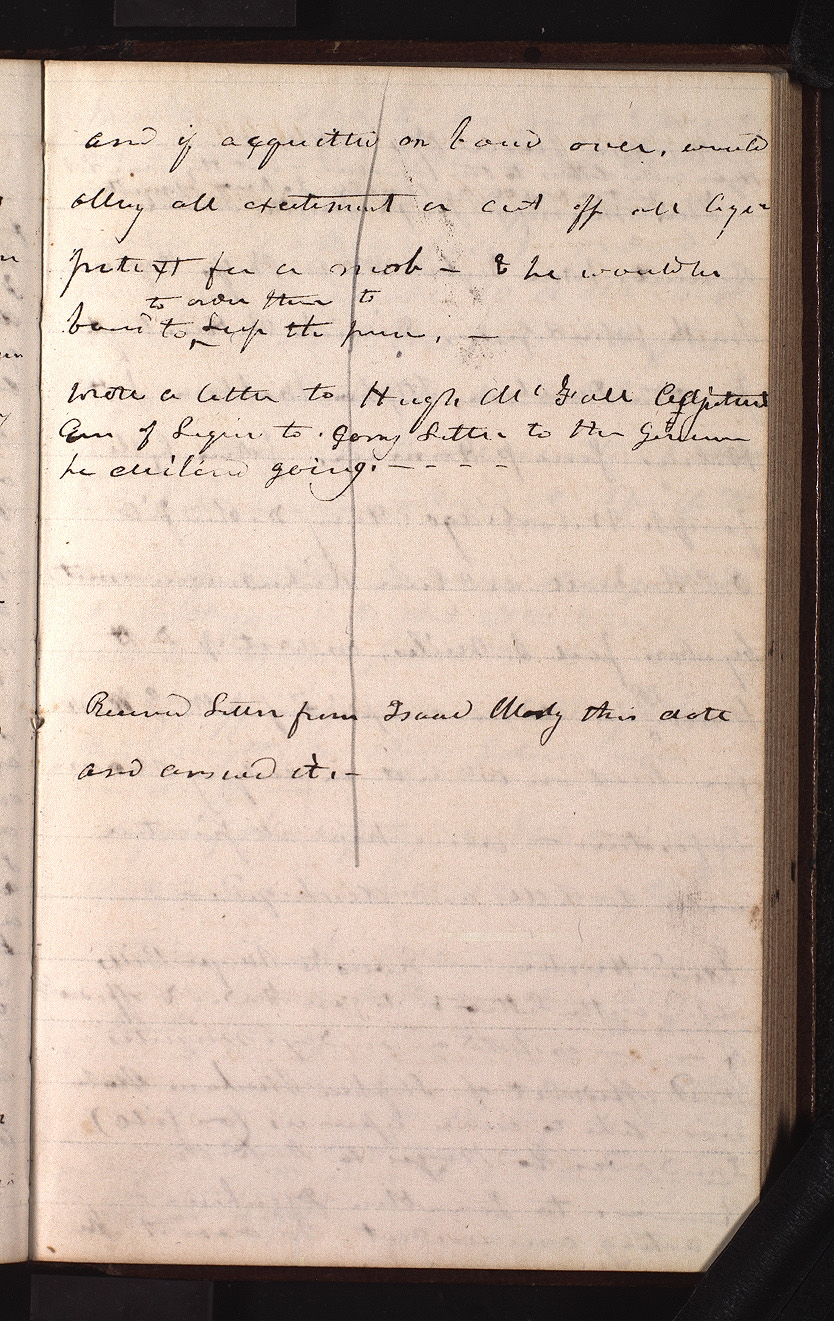 and if acquitted or bound over, would
allay all excitement or cut off all legal
pretext for a mob - & he would be
to order them to
bound to keep the peace. —
Wrote a letter to Hugh McFall Adjutant
Gen of Legion to carry Letter to the Governor
he declined going. - - - -
Received Letter from Isaac Morly this date
and answed it. -